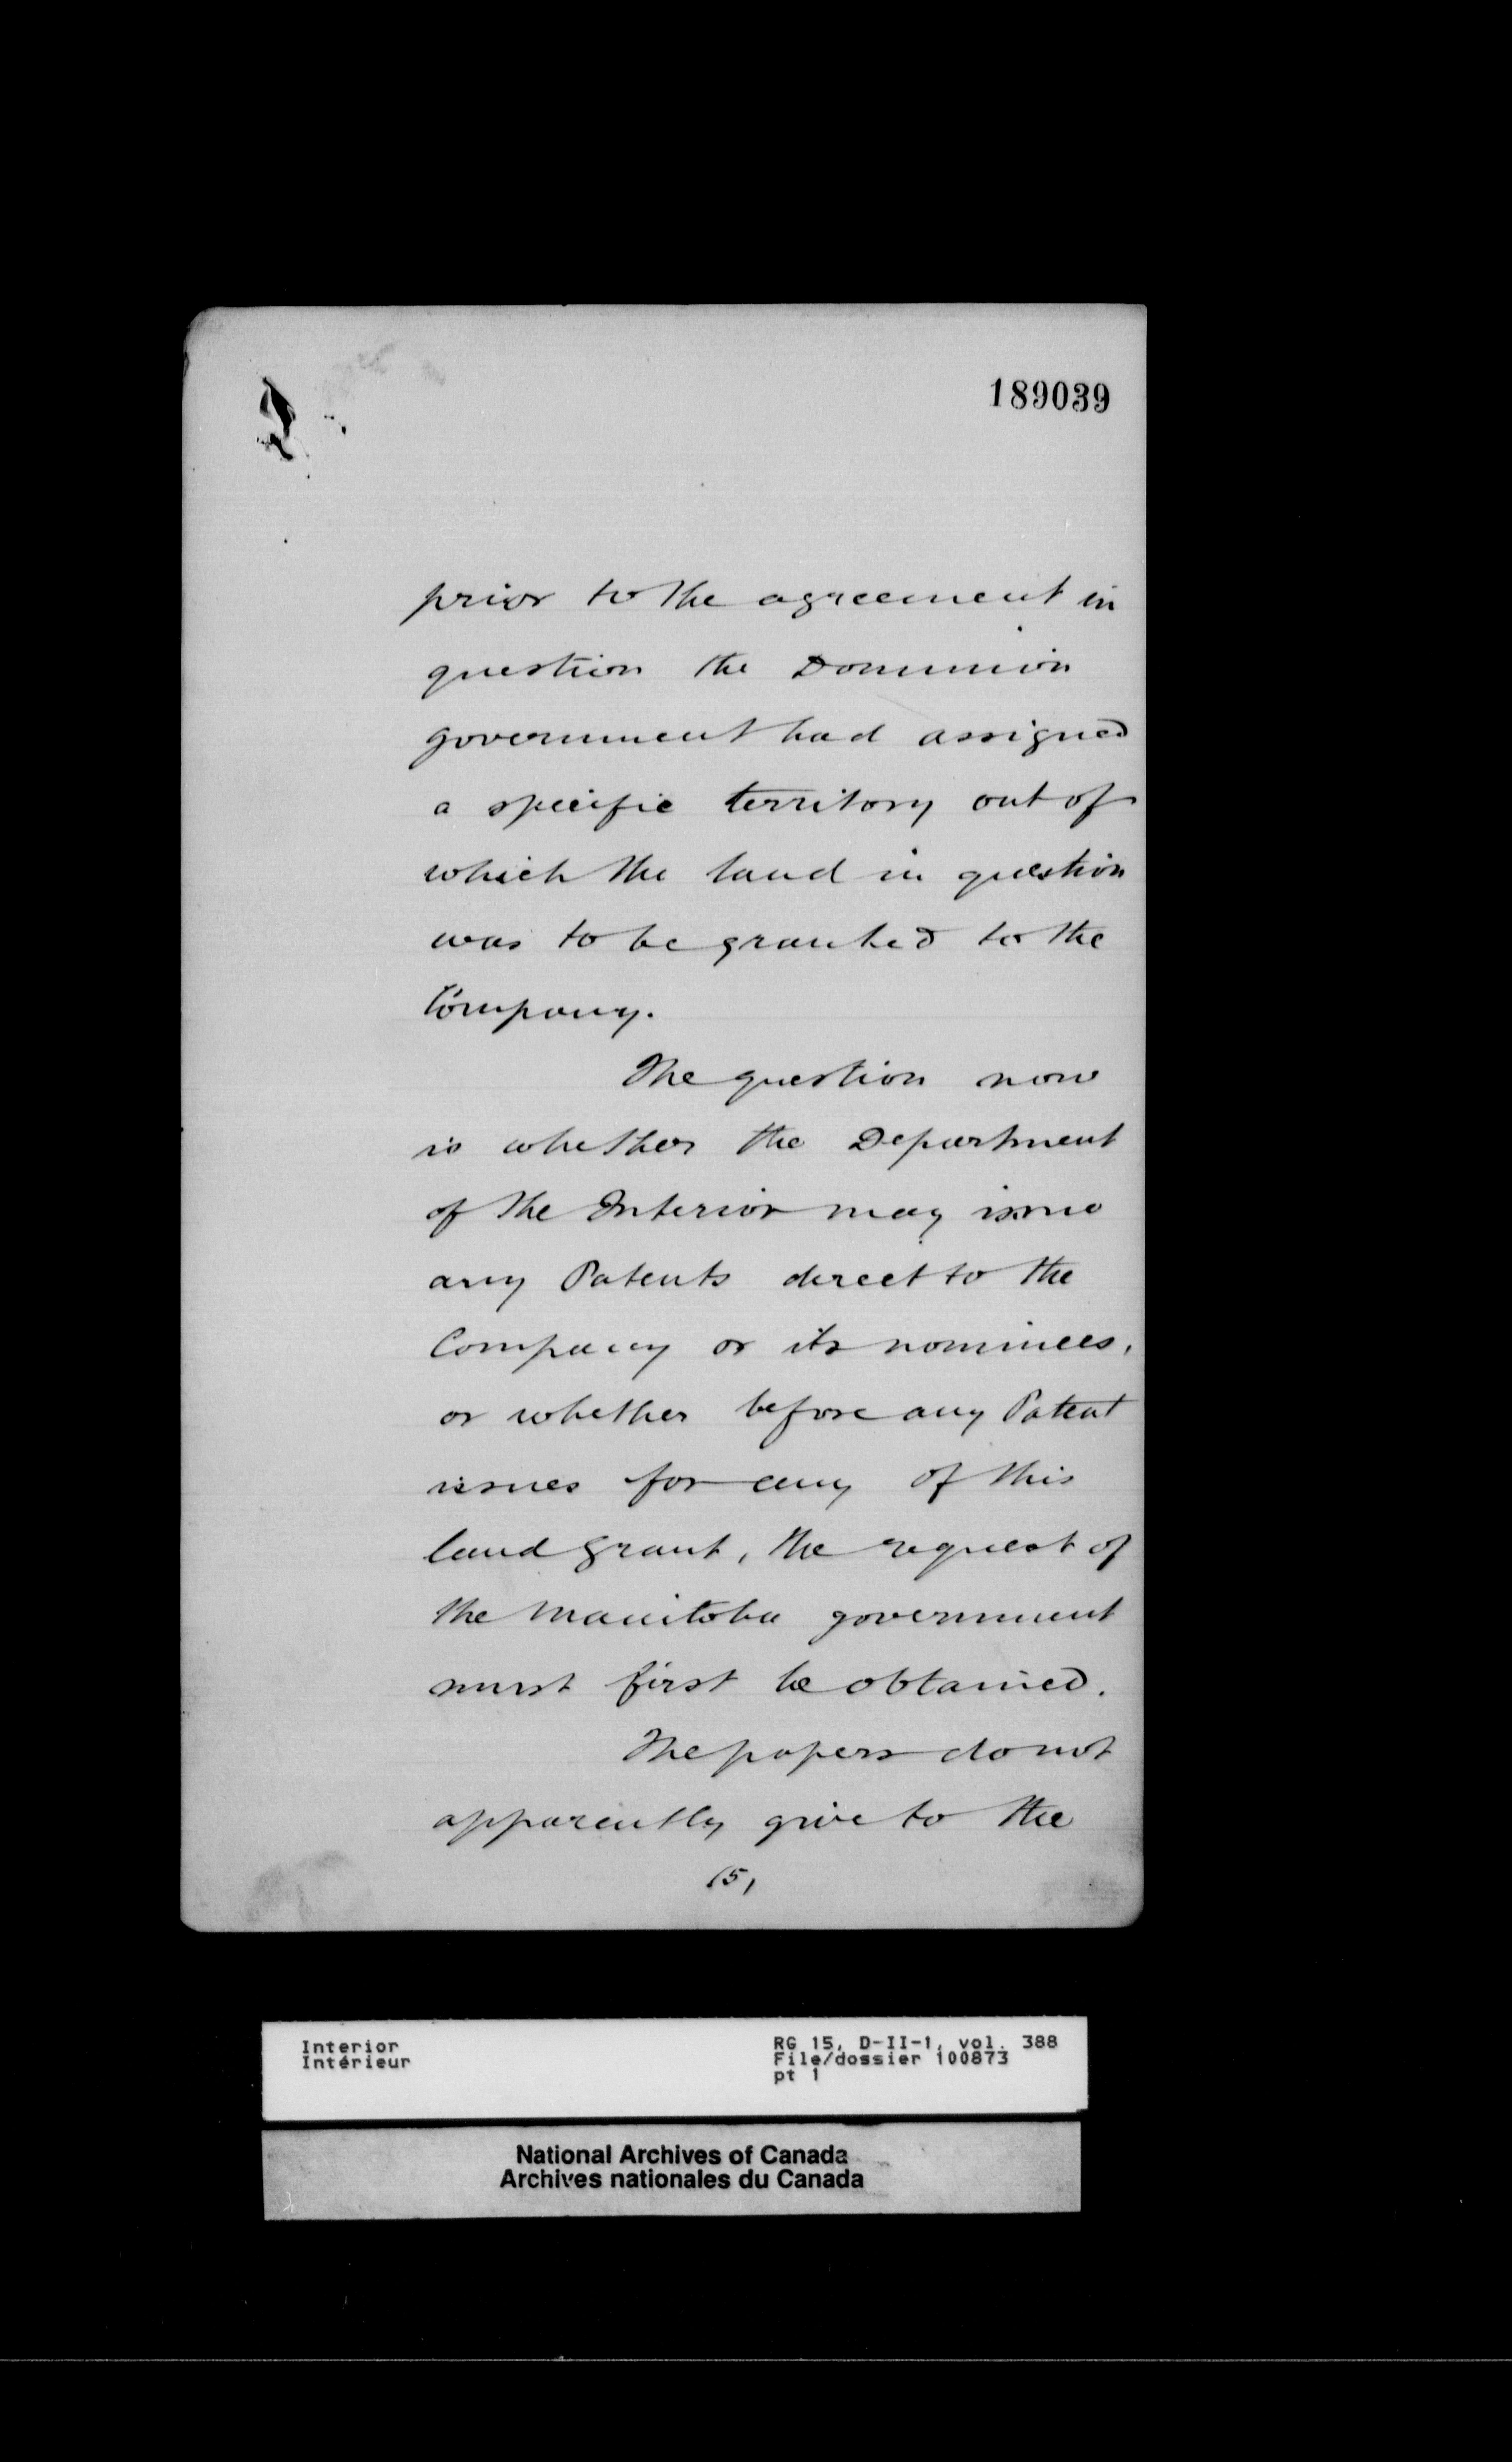 189039
prior to the agreement in
question the Dominion
government had assigned
a specific territory out of
which the land in question
was to be granted to the
Company.
The question now
is whether the Department
of the Interior may issue
any Patents direct to the
Company or its nominees,
or whether before any Patent
issues for any of this
land grant, the request of
the Manitoba government
must first be obtained.
The papers do not
apparently give to the
(5)
Interior
Intérieur
RG 15, D-II-1, vol. 388
File/dossier 100873
pt 1
National Archives of Canada
Archives nationales du Canada